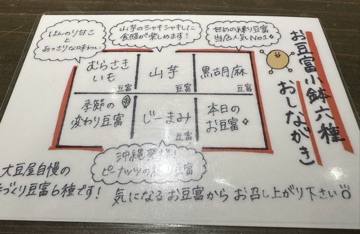 お豆富小鉢六種
おしながき
ほんのり甘さと
あっさりな味わい
山芋のシャキシャキした
食感が楽しめます!
甘めの練り豆富
当店人気No.1
むらさき
いも
豆富
山芋
豆富
黒胡麻
豆富
季節の
変わり豆富
じーまみ
豆富
本日の
お豆富
沖縄発祥!
ピーナッツの豆富
大豆屋自慢の
手づくり豆富6種です!
気になるお豆富からお召し上がり下さい